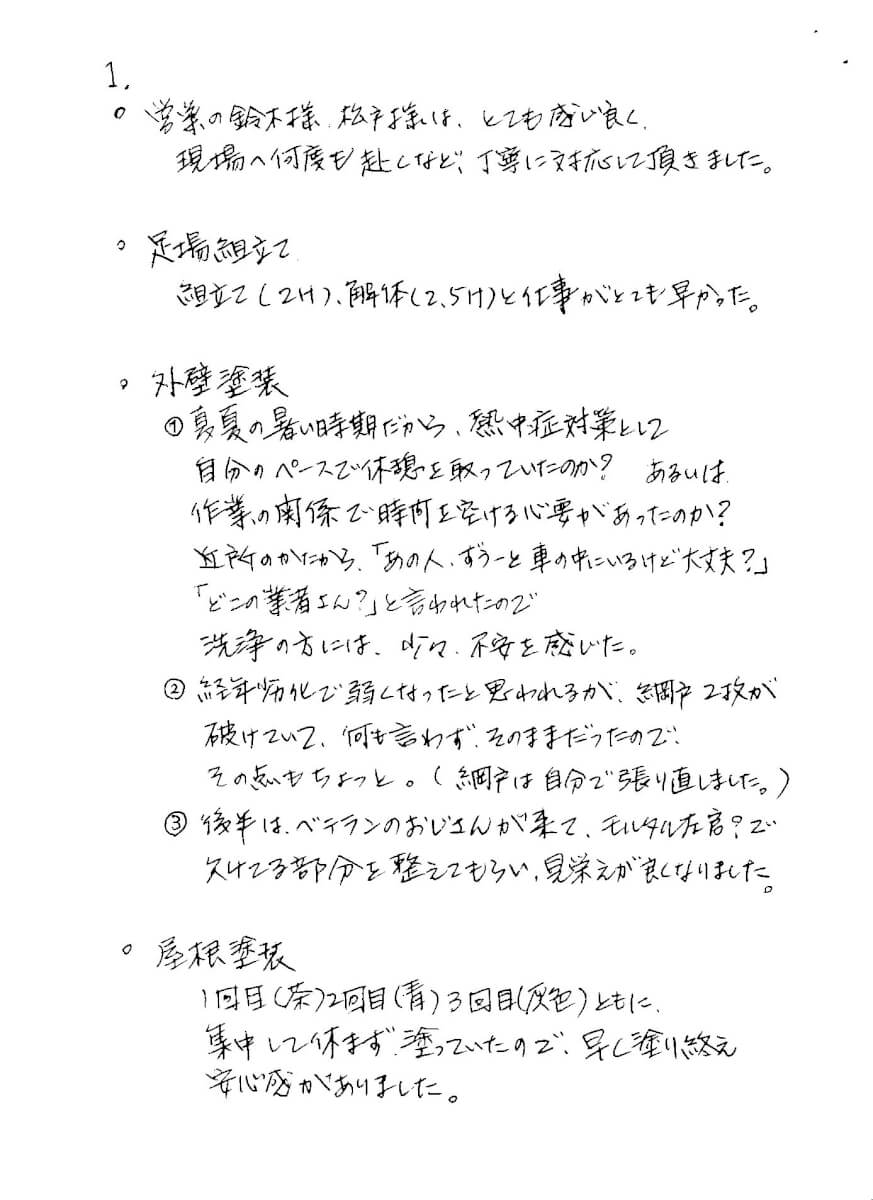 1.
○ 営業の鈴木様、松戸様は、とても感じ良く、
現場へ何度も赴くなど、丁寧に対応して頂きました。
○ 足場組立て
組立て(2H)、解体(2.5H)と仕事がとても早かった。
○ 外壁塗装
① 真夏の暑い時期だから、熱中症対策として
自分のペースで休憩を取っていたのか? あるいは
作業の関係で時間を空ける必要があったのか?
近所のかたから、「あの人、ずうーと車の中にいるけど大丈夫?」
「どこの業者さん?」と言われたので
洗浄の方には、少々、不安を感じた。
② 経年劣化で弱くなったと思われるが、網戸2枚が
破けていて、何も言わず、そのままだったので、
その点もちょっと。(網戸は自分で張り直しました。)
③ 後半は、ベテランのおじさんが来て、モルタル左官?で
欠けてる部分を整えてもらい、見栄えが良くなりました。
○ 屋根塗装
1回目(茶)2回目(青)3回目(灰色)ともに、
集中して休まず、塗っていたので、早く塗り終え
安心感がありました。